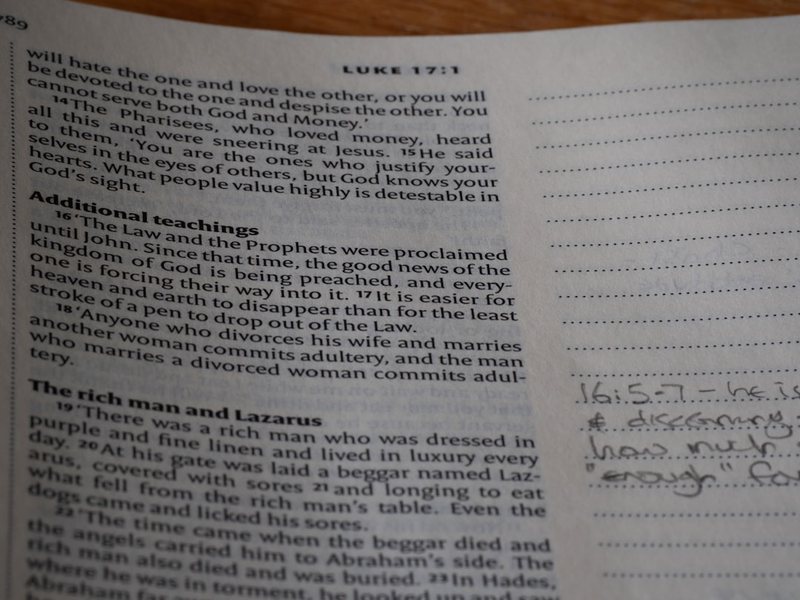 789
LUKE 17:1
will hate the one and love the other, or you will
be devoted to the one and despise the other. You
cannot serve both God and Money.'
14 The Pharisees, who loved money, heard
all this and were sneering at Jesus. 15 He said
to them, 'You are the ones who justify your-
selves in the eyes of others, but God knows your
hearts. What people value highly is detestable in
God's sight.
Additional teachings
16 'The Law and the Prophets were proclaimed
until John. Since that time, the good news of the
kingdom of God is being preached, and every-
one is forcing their way into it. 17 It is easier for
heaven and earth to disappear than for the least
stroke of a pen to drop out of the Law.
18 'Anyone who divorces his wife and marries
another woman commits adultery, and the man
who marries a divorced woman commits adul-
tery.
The rich man and Lazarus
19 'There was a rich man who was dressed in
purple and fine linen and lived in luxury every
day. 20 At his gate was laid a beggar named Laz-
arus, covered with sores 21 and longing to eat
what fell from the rich man's table. Even the
dogs came and licked his sores.
22 'The time came when the beggar died and
the angels carried him to Abraham's side. The
rich man also died and was buried. 23 In Hades,
where he was in torment, he looked up and saw
Abraham far
16:5-7 - he is
& discerning
how much
"enough" for